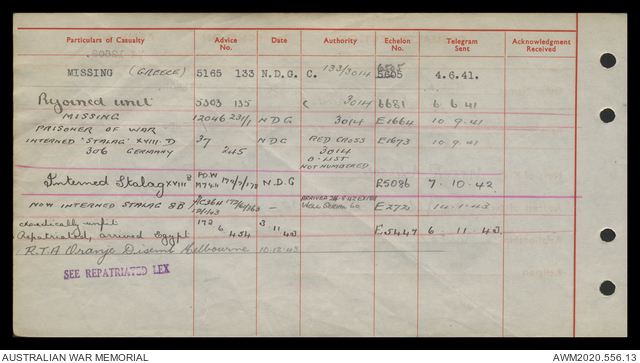 Particulars of Casualty Advice No. Date Authority Echelon No. Telegram Sent Acknowledgment Received
MISSING (GREECE) 5165 133 N.D.G. C. 133/3014 5805 4.6.41.
Rejoined unit 5303 135 C 3014 6681 6 6 41
MISSING 12046 231/1 NDG 3014 E1664 10.9.41
PRISONER OF WAR
INTERNED "STALAG" XVIII.D 37 NDG RED CROSS E1673 10.9.41
306 GERMANY 245 3014
D. LIST
NOT NUMBERED
Interned Stalag XVIII B P.O.W N.D.G E5086 7.10.42.
NOW INTERNED STALAG 8B - E2721 14.1.43.
medically unfit 172 3.11.43
Repatriated, arrived Egypt 6 454 E5447 6 11 43.
R.T.A Oranje Disemb Melbourne 10.12.43
SEE REPATRIATED LEX
AUSTRALIAN WAR MEMORIAL AWM2020.556.13